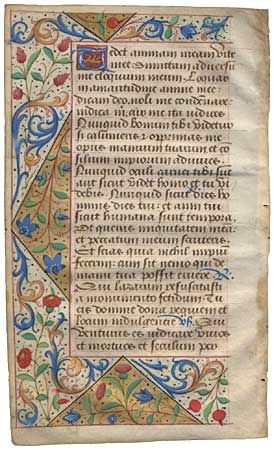 Tedet animam meam vite
mee Dimittam adversu
me eloquium meum. Loquar
in amaritudine anime mee
dicam deo noli me condemnare
indica michi cur me ita iudices
Nunquid bonum tibi videtur
si calumnieris et opprimas me
opus manuum tuarum et con
silium impiorum adiuves
Nunquid oculi carnei tibi sunt
aut sicut videt homo et tu vi
debis Nunquid sicut dies ho
minis dies tui et anni tui
sicut humana sunt tempora.
Ut queras iniquitatem mea
et peccatum meum scruteris
Et scias quia nichil impium
fecerim cum sit nemo qui de
manu tua possit eruere R
Qui lazarum resuscitasti
a monumento fetidum Tu
eis domine dona requiem et
locum indulgencie vs. Qui
venturus es iudicare vivos
et mortuos et seculum per